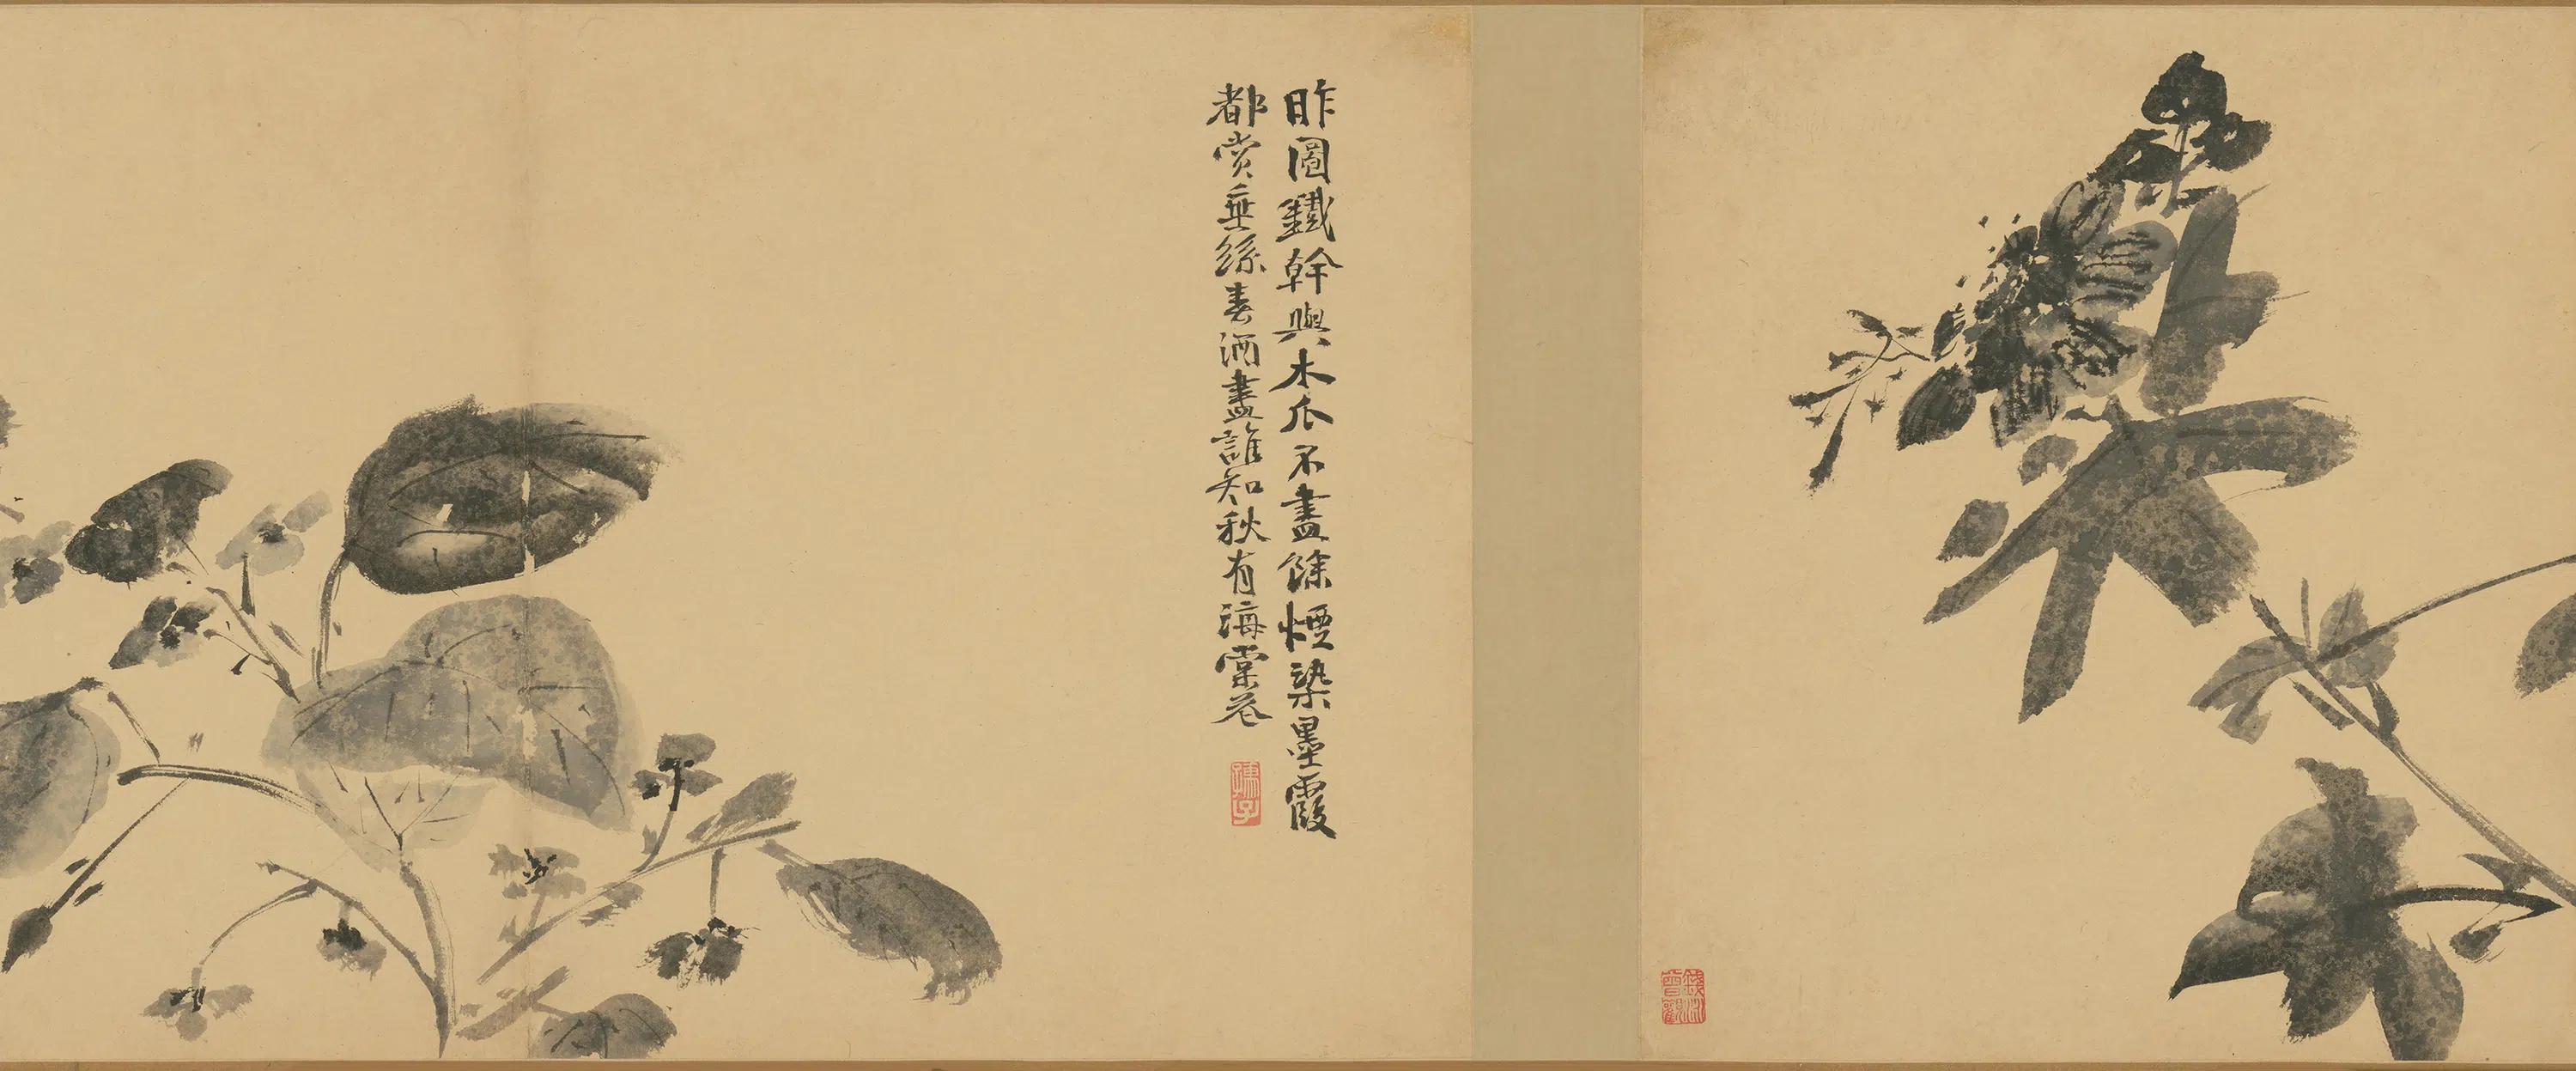 昨圖鐵幹與木瓜不盡餘煙染墨霞
都賞垂絲春酒盡誰知秋有海棠花